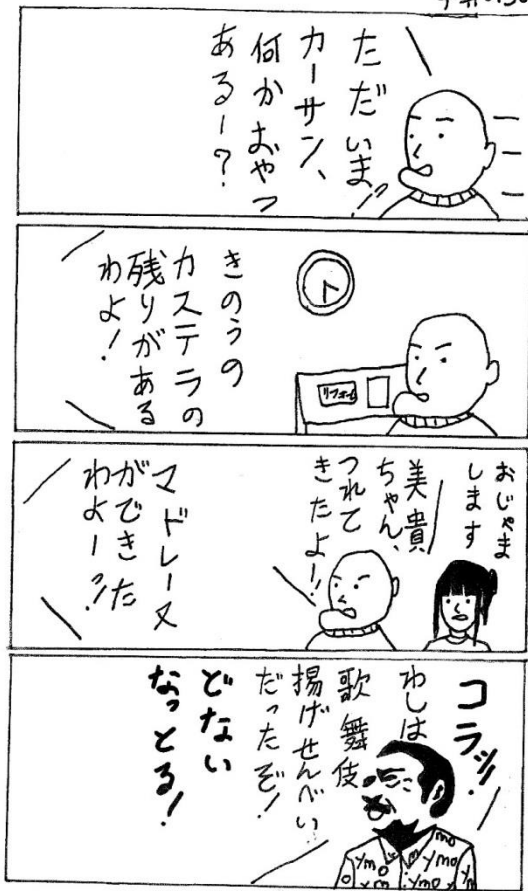 ただいま!!
カーサン、
何かおやつ
あるー?
きのうの
カステラの
残りがある
わよ!
リフォーム
おじゃま
します
美貴
ちゃん、
つれて
きたよー!!
マドレーヌ
ができた
わよー!!
コラッ!
わしは
歌舞伎
揚げせんべい
だったぞ!
どない
なっとる!
ymo
ymo
ymo
ymo